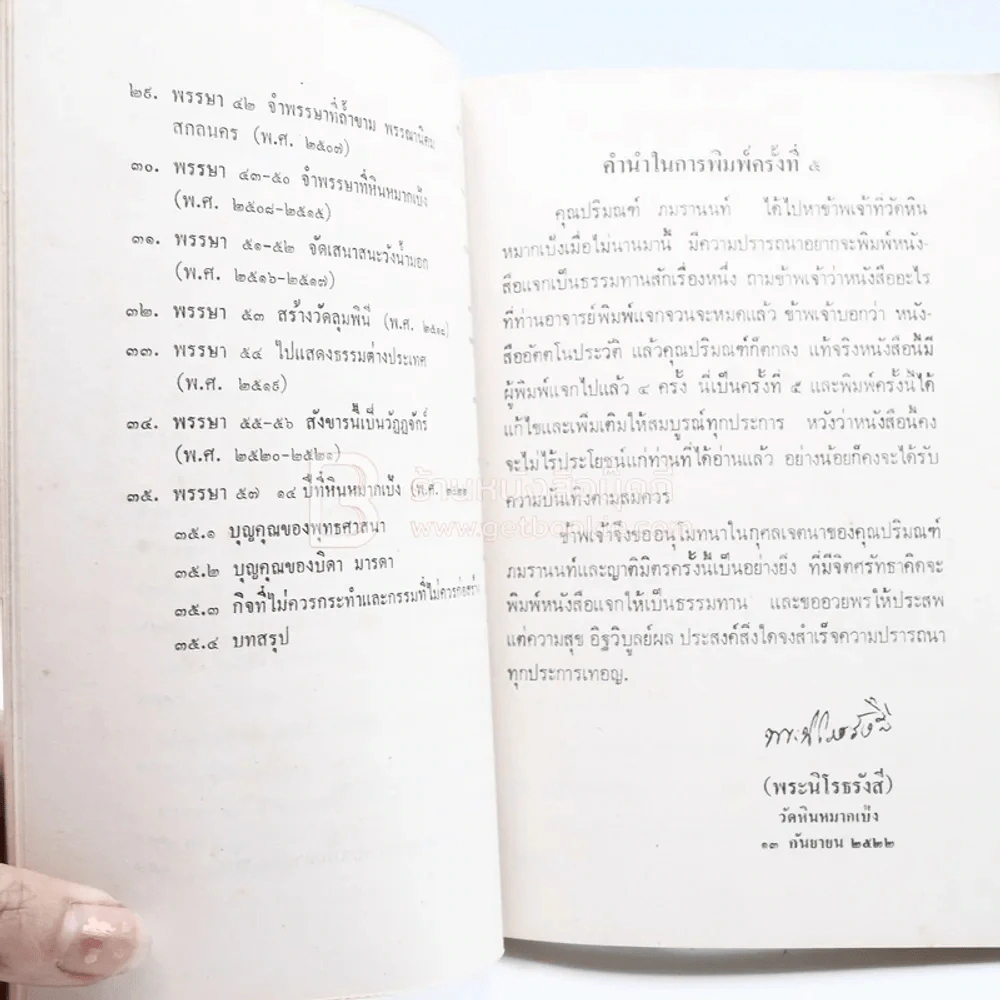 ๒๙. พรรษา ๔๒ จำพรรษาที่ถ้ำขาม พรรณานิคม
สกลนคร (พ.ศ. ๒๕๐๗)
๓๐. พรรษา ๔๓-๕๐ จำพรรษาที่หินหมากเป้ง
(พ.ศ. ๒๕๐๘-๒๕๑๕)
๓๑. พรรษา ๕๑-๕๒ จัดเสนาสนะวังน้ำมอก
(พ.ศ. ๒๕๑๖-๒๕๑๗)
๓๒. พรรษา ๕๓ สร้างวัดลุมพินี (พ.ศ. ๒๕๑๘)
๓๓. พรรษา ๕๔ ไปแสดงธรรมต่างประเทศ
(พ.ศ. ๒๕๑๙)
๓๔. พรรษา ๕๕-๕๖ สังขารนี้เป็นวัฏฏจักร์
(พ.ศ. ๒๕๒๐-๒๕๒๑)
๓๕. พรรษา ๕๗ ๑๔ ปีที่หินหมากเป้ง (พ.ศ.
๓๕.๑ บุญคุณของพุทธศาสนา
๓๕.๒ บุญคุณของบิดา มารดา
๓๕.๓ กิจที่ไม่ควรกระทำและกรรมที่ไม่ควรก่อสร้าง
๓๕.๔ บทสรุป
คำนำในการพิมพ์ครั้งที่ ๕
คุณปริมณฑ์ ภมรานนท์ ได้ไปหาข้าพเจ้าที่วัดหิน
หมากเป้งเมื่อไม่นานมานี้ มีความปรารถนาอยากจะพิมพ์หนัง-
สือแจกเป็นธรรมทานสักเรื่องหนึ่ง ถามข้าพเจ้าว่าหนังสืออะไร
ที่ท่านอาจารย์พิมพ์แจกจวนจะหมดแล้ว ข้าพเจ้าบอกว่า หนัง-
สืออัตตโนประวัติ แล้วคุณปริมณฑ์ก็ตกลง แท้จริงหนังสือนี้มี
ผู้พิมพ์แจกไปแล้ว ๔ ครั้ง นี่เป็นครั้งที่ ๕ และพิมพ์ครั้งนี้ได้
แก้ไขและเพิ่มเติมให้สมบูรณ์ทุกประการ หวังว่าหนังสือนี้คง
จะไม่ไร้ประโยชน์แก่ท่านที่ได้อ่านแล้ว อย่างน้อยก็คงจะได้รับ
ความบันเทิงตามสมควร
ข้าพเจ้าจึงขออนุโมทนาในกุศลเจตนาของคุณปริมณฑ์
ภมรานนท์และญาติมิตรครั้งนี้เป็นอย่างยิ่ง ที่มีจิตศรัทธาคิดจะ
พิมพ์หนังสือแจกให้เป็นธรรมทาน และขออวยพรให้ประสพ
แต่ความสุข อิฐวิบูลย์ผล ประสงค์สิ่งใดจงสำเร็จความปรารถนา
ทุกประการเทอญ.
(พระนิโรธรังสี)
วัดหินหมากเป้ง
๑๓ กันยายน ๒๕๒๒
ร้านหนังสือบุ๊คดี
www.getbookie.com